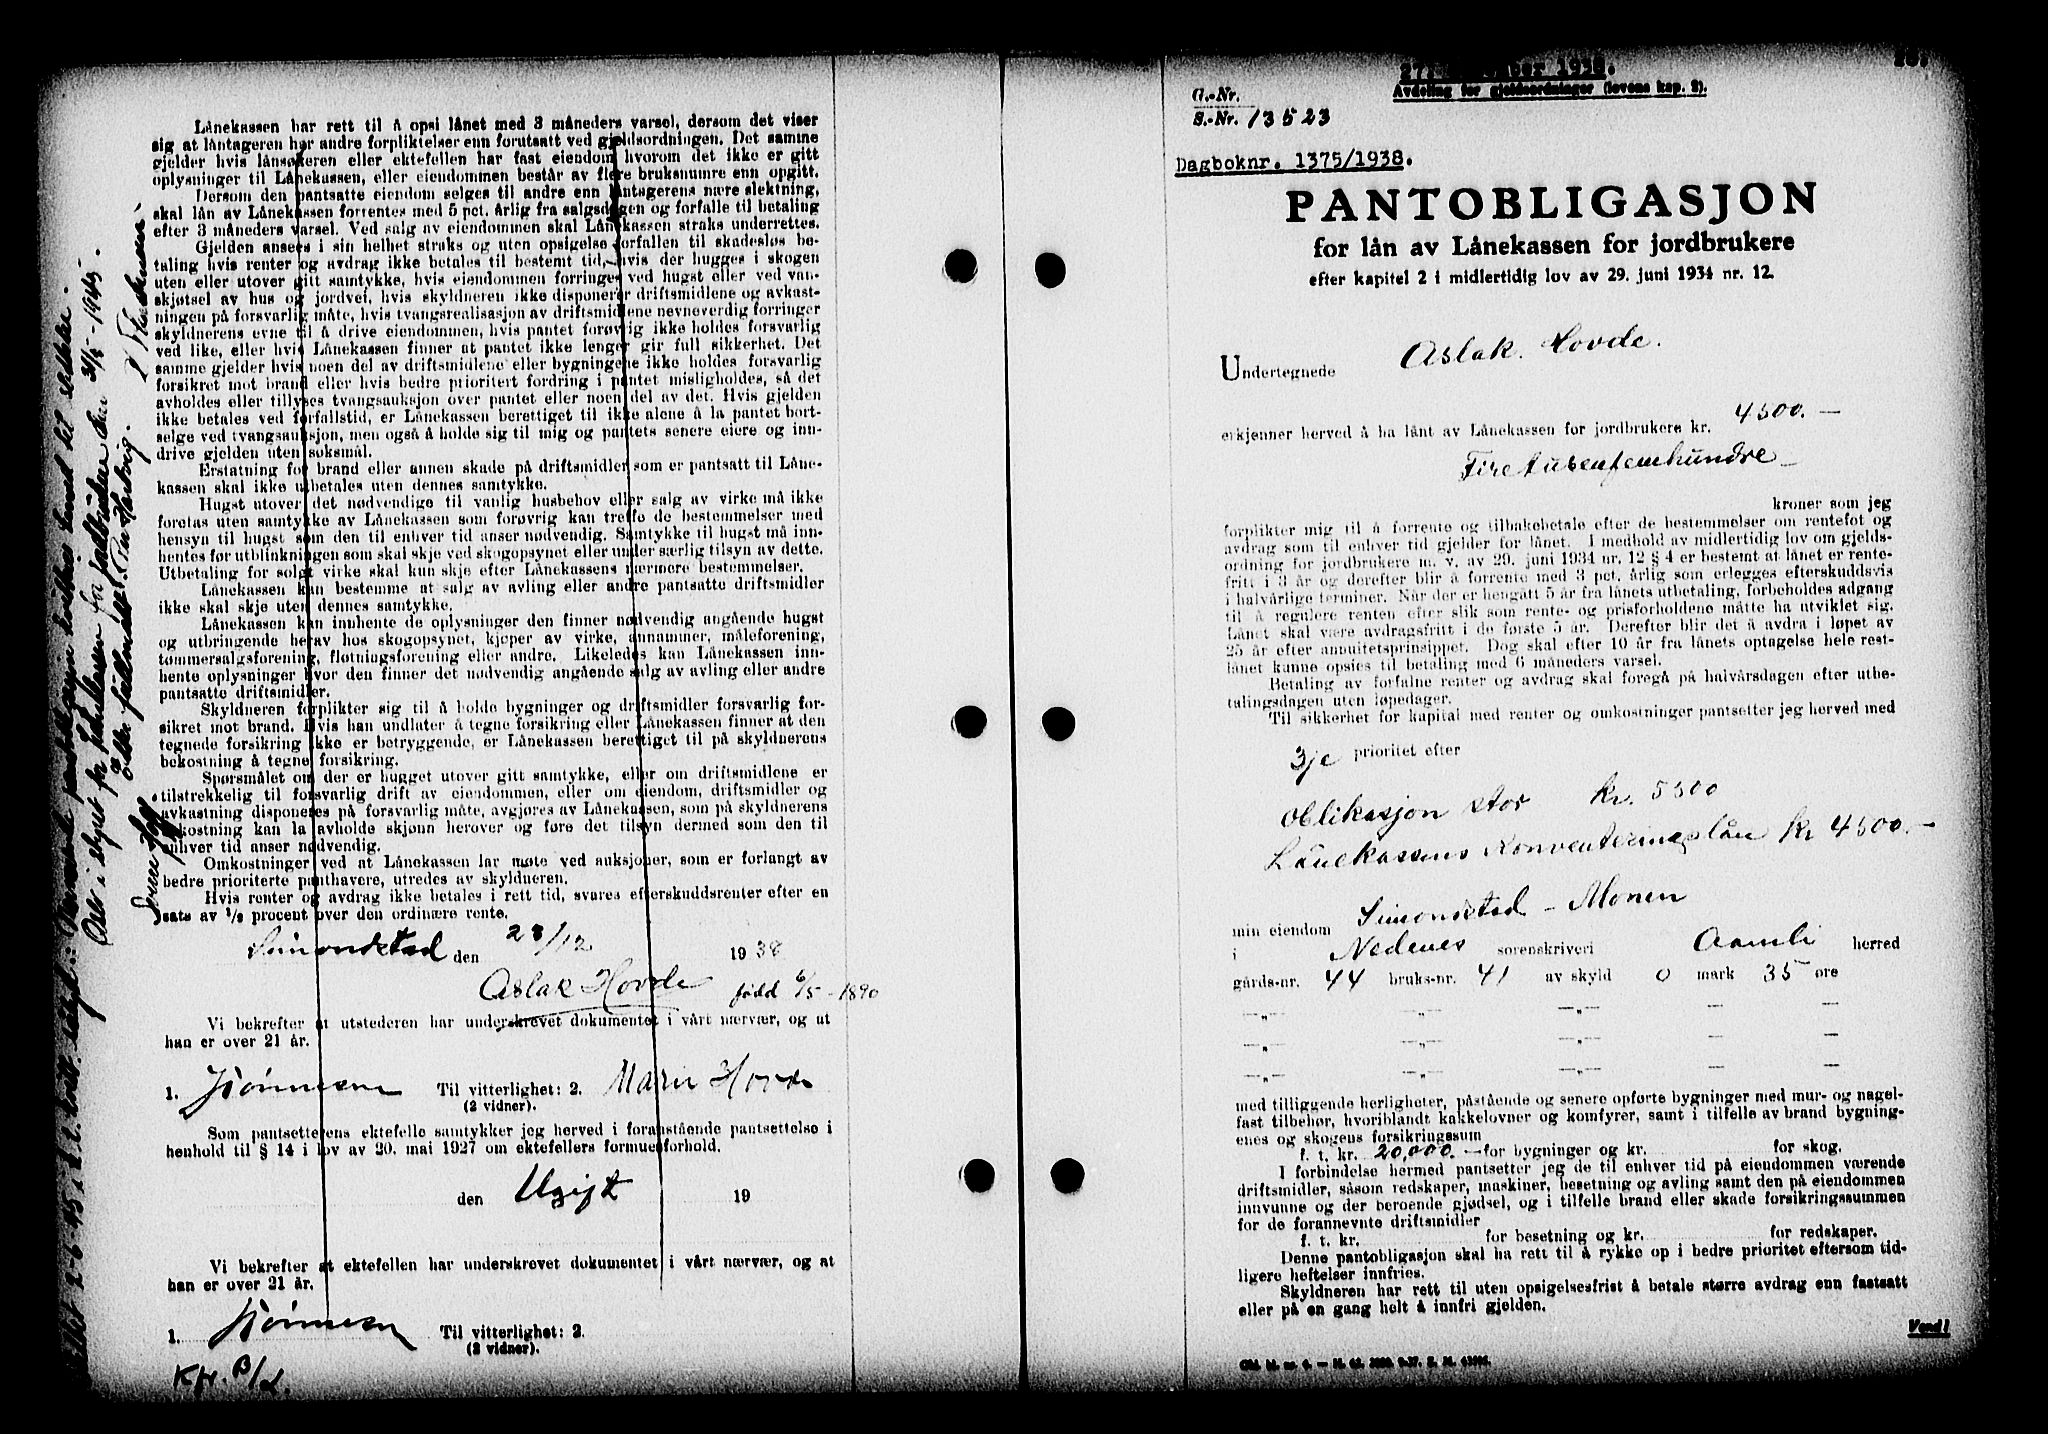 Lånekassen har rett til å opsi lånet med 3 måneders varsel, dersom det viser
sig at låntageren har andre forpliktelser enn forutsatt ved gjeldsordningen. Det samme
gjelder hvis lånsøkeren eller ektefellen har fast eiendom hvorom det ikke er gitt
oplysninger til Lånekassen, eller eiendommen består av flere bruksnumre enn opgitt.
Dersom den pantsatte eiendom selges til andre enn låntagerens nære slektning,
skal lån av Lånekassen forrentes med 5 pct. årlig fra salgsdagen og forfalle til betaling
efter 3 måneders varsel. Ved salg av eiendommen skal Lånekassen straks underrettes.
Gjelden ansees i sin helhet straks og uten opsigelse forfallen til skadesløs be-
taling hvis renter og avdrag ikke betales til bestemt tid, hvis der hugges i skogen
uten eller utover gitt samtykke, hvis eiendommen forringes ved hugst eller ved van-
skjøtsel av hus og jordvei, hvis skyldneren ikke disponerer driftsmidlene og avkast-
ningen på forsvarlig måte, hvis tvangsrealisasjon av driftsmidlene nevneverdig forringer
skyldnerens evne til å drive eiendommen, hvis pantet forøvrig ikke holdes forsvarlig
ved like, eller hvis Lånekassen finner at pantet ikke lenger gir full sikkerhet. Det
samme gjelder hvis noen del av driftsmidlene eller bygningene ikke holdes forsvarlig
forsikret mot brand eller hvis bedre prioritert fordring i pantet misligholdes, så det
avholdes eller tillyses tvangsauksjon over pantet eller noen del av det. Hvis gjelden
ikke betales ved forfallstid, er Lånekassen berettiget til ikke alene å la pantet bort-
selge ved tvangsauksjon, men også å holde sig til mig og pantets senere eiere og inn-
drive gjelden uten søksmål.
Erstatning for brand eller annen skade på driftsmidler som er pantsatt til Låne-
kassen skal ikke utbetales uten dennes samtykke.
Hugst utover det nødvendige til vanlig husbehov eller salg av virke må ikke
foretas uten samtykke av Lånekassen som forøvrig kan treffe de bestemmelser med
hensyn til hugst som den til enhver tid anser nødvendig. Samtykke til hugst må inn-
hentes før utblinkningen som skal skje ved skogopsynet eller under særlig tilsyn av dette.
Utbetaling for solgt virke skal kun skje efter Lånekassens nærmere bestemmelser.
Lånekassen kan bestemme at salg av avling eller andre pantsatte driftsmidler
ikke skal skje uten dennes samtykke.
Lånekassen kan innhente de oplysninger den finner nødvendig angående hugst
og utbringende herav hos skogopsynet, kjøper av virke, annammer, måleforening,
tømmersalgsforening, fløtningsforening eller andre. Likeledes kan Lånekassen inn-
hente oplysninger hvor den finner det nødvendig angående salg av avling eller andre
pantsatte driftsmidler.
Skyldneren forplikter sig til å holde bygninger og driftsmidler forsvarlig for-
sikret mot brand. Hvis han undlater å tegne forsikring eller Lånekassen finner at den
tegnede forsikring ikke er betryggende, er Lånekassen berettiget til på skyldnerens
bekostning å tegne forsikring.
Spørsmålet om der er hugget utover gitt samtykke, eller om driftsmidlene er
tilstrekkelig til forsvarlig drift av eiendommen, eller om eiendom, driftsmidler og
avkastning disponeres på forsvarlig måte, avgjøres av Lånekassen, som på skyldnerens
bekostning kan la avholde skjønn herover og føre det tilsyn dermed som den til
enhver tid anser nødvendig.
Omkostninger ved at Lånekassen lar møte ved auksjoner, som er forlangt av
bedre prioriterte panthavere, utredes av skyldneren.
Hvis renter og avdrag ikke betales i rett tid, svares efterskuddsrenter efter en
sats av ½ procent over den ordinære rente.
Simondstad den 23/12 1938
Aslak Hovde født 6/5-1890
Vi bekrefter at utstederen har underskrevet dokumentet i vårt nærvær, og at
han er over 21 år.
1. Til vitterlighet: 2. Marie Hovde
(2 vidner).
Som pantsetterens ektefelle samtykker jeg herved i foranstående pantsettelse i
henhold til § 14 i lov av 20. mai 1927 om ektefellers formuesforhold.
den Ugift 19
Vi bekrefter at ektefellen har underskrevet dokumentet i vårt nærvær, og at
han er over 21 år.
1. Til vitterlighet: 2.
(2 vidner).
Kfr. B/L.
1938.
Avdeling for gjeldsordninger (lovens kap. 2).
G.-Nr.
S.-Nr. 13523
Dagboknr. 1375/1938.
PANTOBLIGASJON
for lån av Lånekassen for jordbrukere
efter kapitel 2 i midlertidig lov av 29. juni 1934 nr. 12.
Undertegnede Aslak Hovde.
erkjenner herved å ha lånt av Lånekassen for jordbrukere kr. 4500.—
Firetusenfemhundre —
kroner som jeg
forplikter mig til å forrente og tilbakebetale efter de bestemmelser om rentefot og
avdrag som til enhver tid gjelder for lånet. I medhold av midlertidig lov om gjelds-
ordning for jordbrukere m. v. av 29. juni 1934 nr. 12 § 4 er bestemt at lånet er rente-
fritt i 3 år og derefter blir å forrente med 3 pct. årlig som erlegges efterskuddsvis
i halvårlige terminer. Når der er hengått 5 år fra lånets utbetaling, forbeholdes adgang
til å regulere renten efter slik som rente- og prisforholdene måtte ha utviklet sig.
Lånet skal være avdragsfritt i de første 5 år. Derefter blir det å avdra i løpet av
25 år efter annuitetsprinsippet. Dog skal efter 10 år fra lånets optagelse hele rest-
lånet kunne opsies til betaling med 6 måneders varsel.
Betaling av forfalne renter og avdrag skal foregå på halvårsdagen efter utbe-
talingsdagen uten løpedager.
Til sikkerhet for kapital med renter og omkostninger pantsetter jeg herved med
3je prioritet efter
Oblikasjon stor kr. 5500
Lånekassens Konverteringslån kr 4500.—
min eiendom Simondstad - Monen
i Nedenes sorenskriveri Aamli herred
gårds-nr. 44 bruks-nr. 41 av skyld 0 mark 35 øre
—„— —„— —„— — —
—„— —„— —„— — —
—„— —„— —„— — —
med tilliggende herligheter, påstående og senere opførte bygninger med mur- og nagel-
fast tilbehør, hvoriblandt kakkelovner og komfyrer, samt i tilfelle av brand bygning-
enes og skogens forsikringssum
f. t. kr. 20,000.— for bygninger og kr. for skog.
I forbindelse hermed pantsetter jeg de til enhver tid på eiendommen værende
driftsmidler, såsom redskaper, maskiner, besetning og avling samt den på eiendommen
innvunne og der beroende gjødsel, og i tilfelle brand eller skade forsikringssummen
for de forannevnte driftsmidler
f. t. kr. for besetning og kr. for redskaper.
Denne pantobligasjon skal ha rett til å rykke op i bedre prioritet eftersom tid-
ligere heftelser innfries.
Skyldneren har rett til uten opsigelsesfrist å betale større avdrag enn fastsatt
eller på en gang helt å innfri gjelden.
Vend!